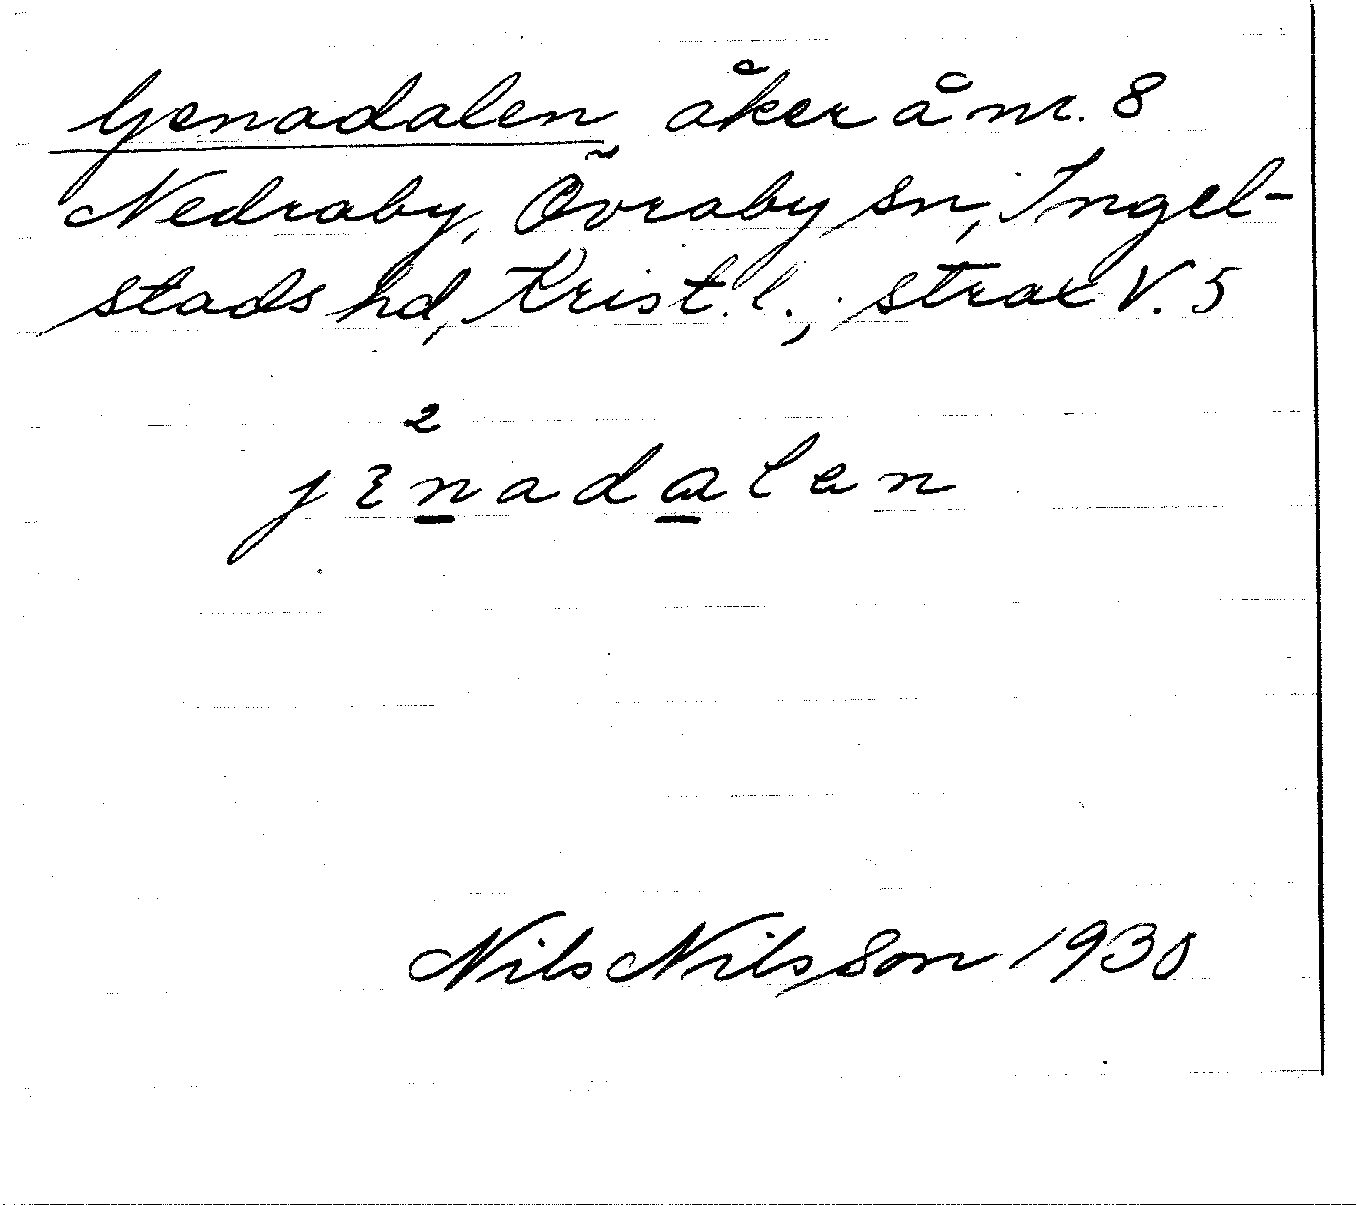 Genadalen åker å nr. 8
Nedraby, Övraby sn, Ingel-
stads hd, Krist. l.; strax V. 5
2
jɛnadalen
Nils Nilsson 1930